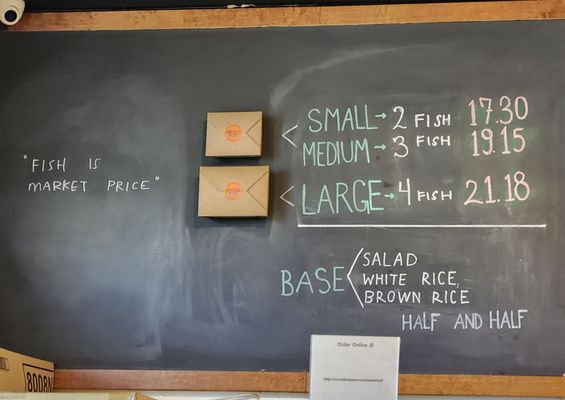 "FISH IS
MARKET PRICE"
SMALL → 2 FISH 17.30
MEDIUM → 3 FISH 19.15
LARGE → 4 FISH 21.18
BASE
SALAD
WHITE RICE,
BROWN RICE
HALF AND HALF
Order Online @
8008